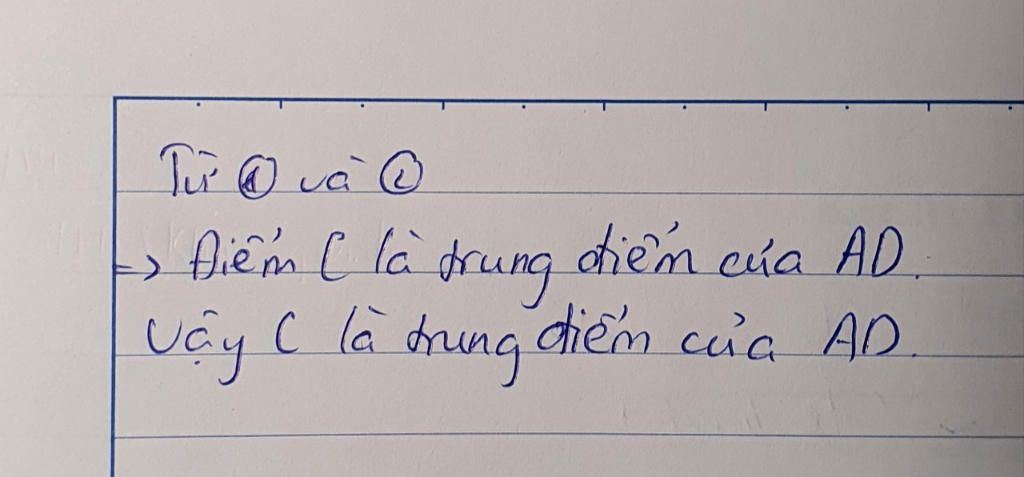 Từ ① và ②
=> Điểm C là trung điểm của AD.
Vậy C là trung điểm của AD.